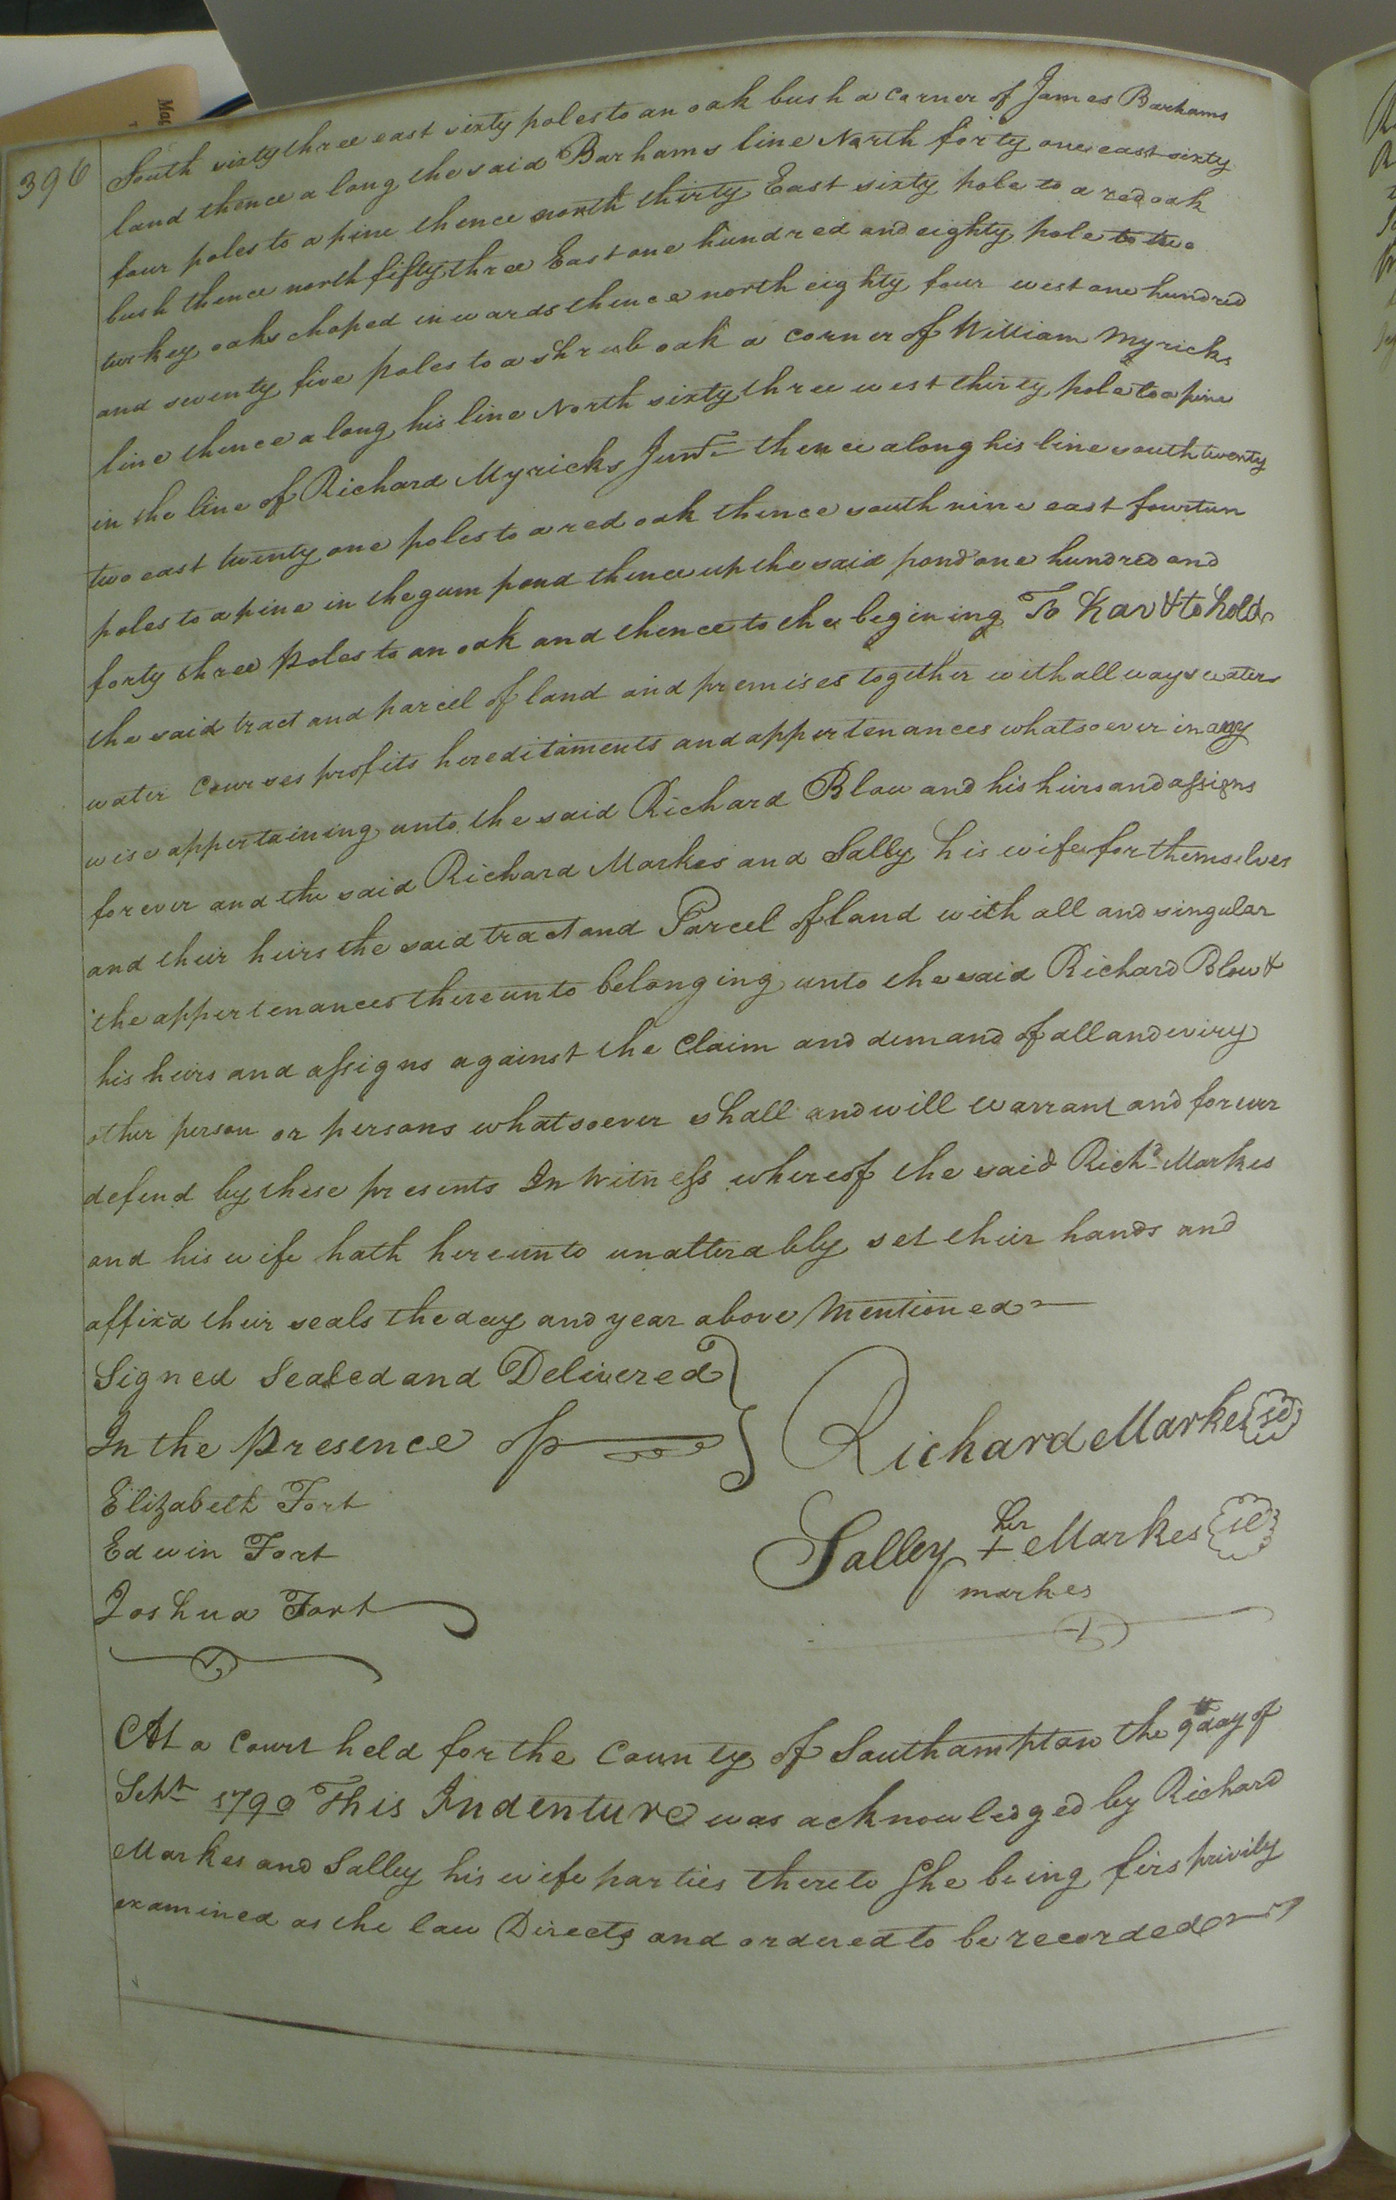 396
South sixty three east sixty poles to an oak bush a corner of James Barhams
land thence along the said Barhams line North forty one east sixty
four poles to a pine thence north thirty East sixty pole to a red oak
bush thence north fifty three East one hundred and eighty pole to two
turkey oaks choped inwards thence north eighty four west one hundred
and seventy five poles to a shrub oak a corner of William Myricks
line thence along his line North sixty three west thirty pole to a pine
in the line of Richard Myricks Junr thence along his line south twenty
two east twenty one poles to a red oak thence south nine east fourteen
poles to a pine in the gum pond thence up the said pond one hundred and
forty three poles to an oak and thence to the begining To Have & to hold
the said tract and parcel of land and premises together with all ways waters
water Courses profits hereditaments and appertenances whatsoever in any
wise appertaining unto the said Richard Blow and his heirs and assigns
forever and the said Richard Markes and Sally his wife for themselves
and their heirs the said tract and Parcel of land with all and singular
the appertenances thereunto belonging unto the said Richard Blow &
his heirs and assigns against the Claim and demand of all and every
other person or persons whatsoever shall and will warrant and forever
defend by these presents In Witness whereof the said Richd Markes
and his wife hath hereunto unalterably set their hands and
affix'd their seals the day and year above Mentioned
Signed Sealed and Delivered
In the Presence of
Richard Markes Sd
Elizabeth Fort
Edwin Fort
Joshua Fort
her
Salley + Markes Sd
markes
At a Court held for the County of Southampton the 9th day of
Sebtr 1790 This Indenture was acknowledged by Richard
Markes and Salley his wife parties thereto She being firs privily
examined as the law Directs and ordered to be recorded
Mag